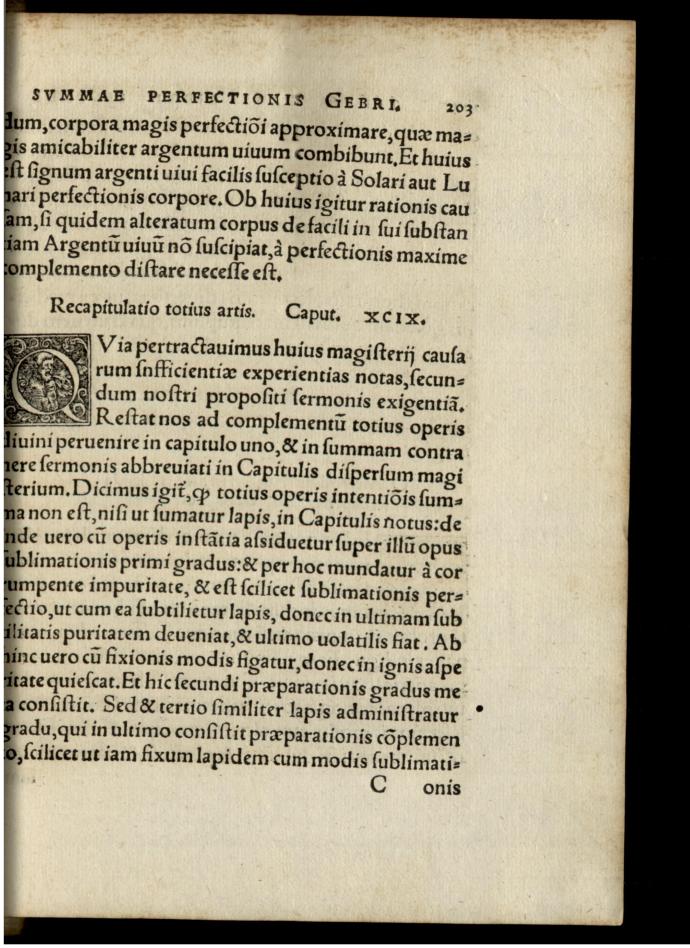 SVMMAE PERFECTIONIS GEBRI. 203
dum, corpora magis perfectiōi approximare, quæ ma⸗
gis amicabiliter argentum uiuum combibunt. Et huius
est signum argenti uiui facilis susceptio à Solari aut Lu
nari perfectionis corpore. Ob huius igitur rationis cau
sam, si quidem alteratum corpus de facili in sui substan
tiam Argentū uiuū nō suscipiat, à perfectionis maxime
complemento distare necesse est.
Recapitulatio totius artis. Caput. XCIX.
QVia pertractauimus huius magisterij causa
rum snfficientiæ experientias notas, secun⸗
dum nostri propositi sermonis exigentiā.
Restat nos ad complementū totius operis
diuini peruenire in capitulo uno, & in summam contra
here sermonis abbreuiati in Capitulis dispersum magi
sterium. Dicimus igit̃, ꝙ totius operis intentiōis sum⸗
ma non est, nisi ut sumatur lapis, in Capitulis notus: de
inde uero cū operis instātia assiduetur super illū opus
sublimationis primi gradus: & per hoc mundatur à cor
rumpente impuritate, & est scilicet sublimationis per⸗
fectio, ut cum ea subtilietur lapis, donec in ultimam sub
tilitatis puritatem deueniat, & ultimo uolatilis fiat. Ab
hinc uero cū fixionis modis figatur, donec in ignis aspe
ritate quiescat. Et hic secundi præparationis gradus me
ta consistit. Sed & tertio similiter lapis administratur
gradu, qui in ultimo consistit præparationis cōplemen
to, scilicet ut iam fixum lapidem cum modis sublimati⸗
C onis